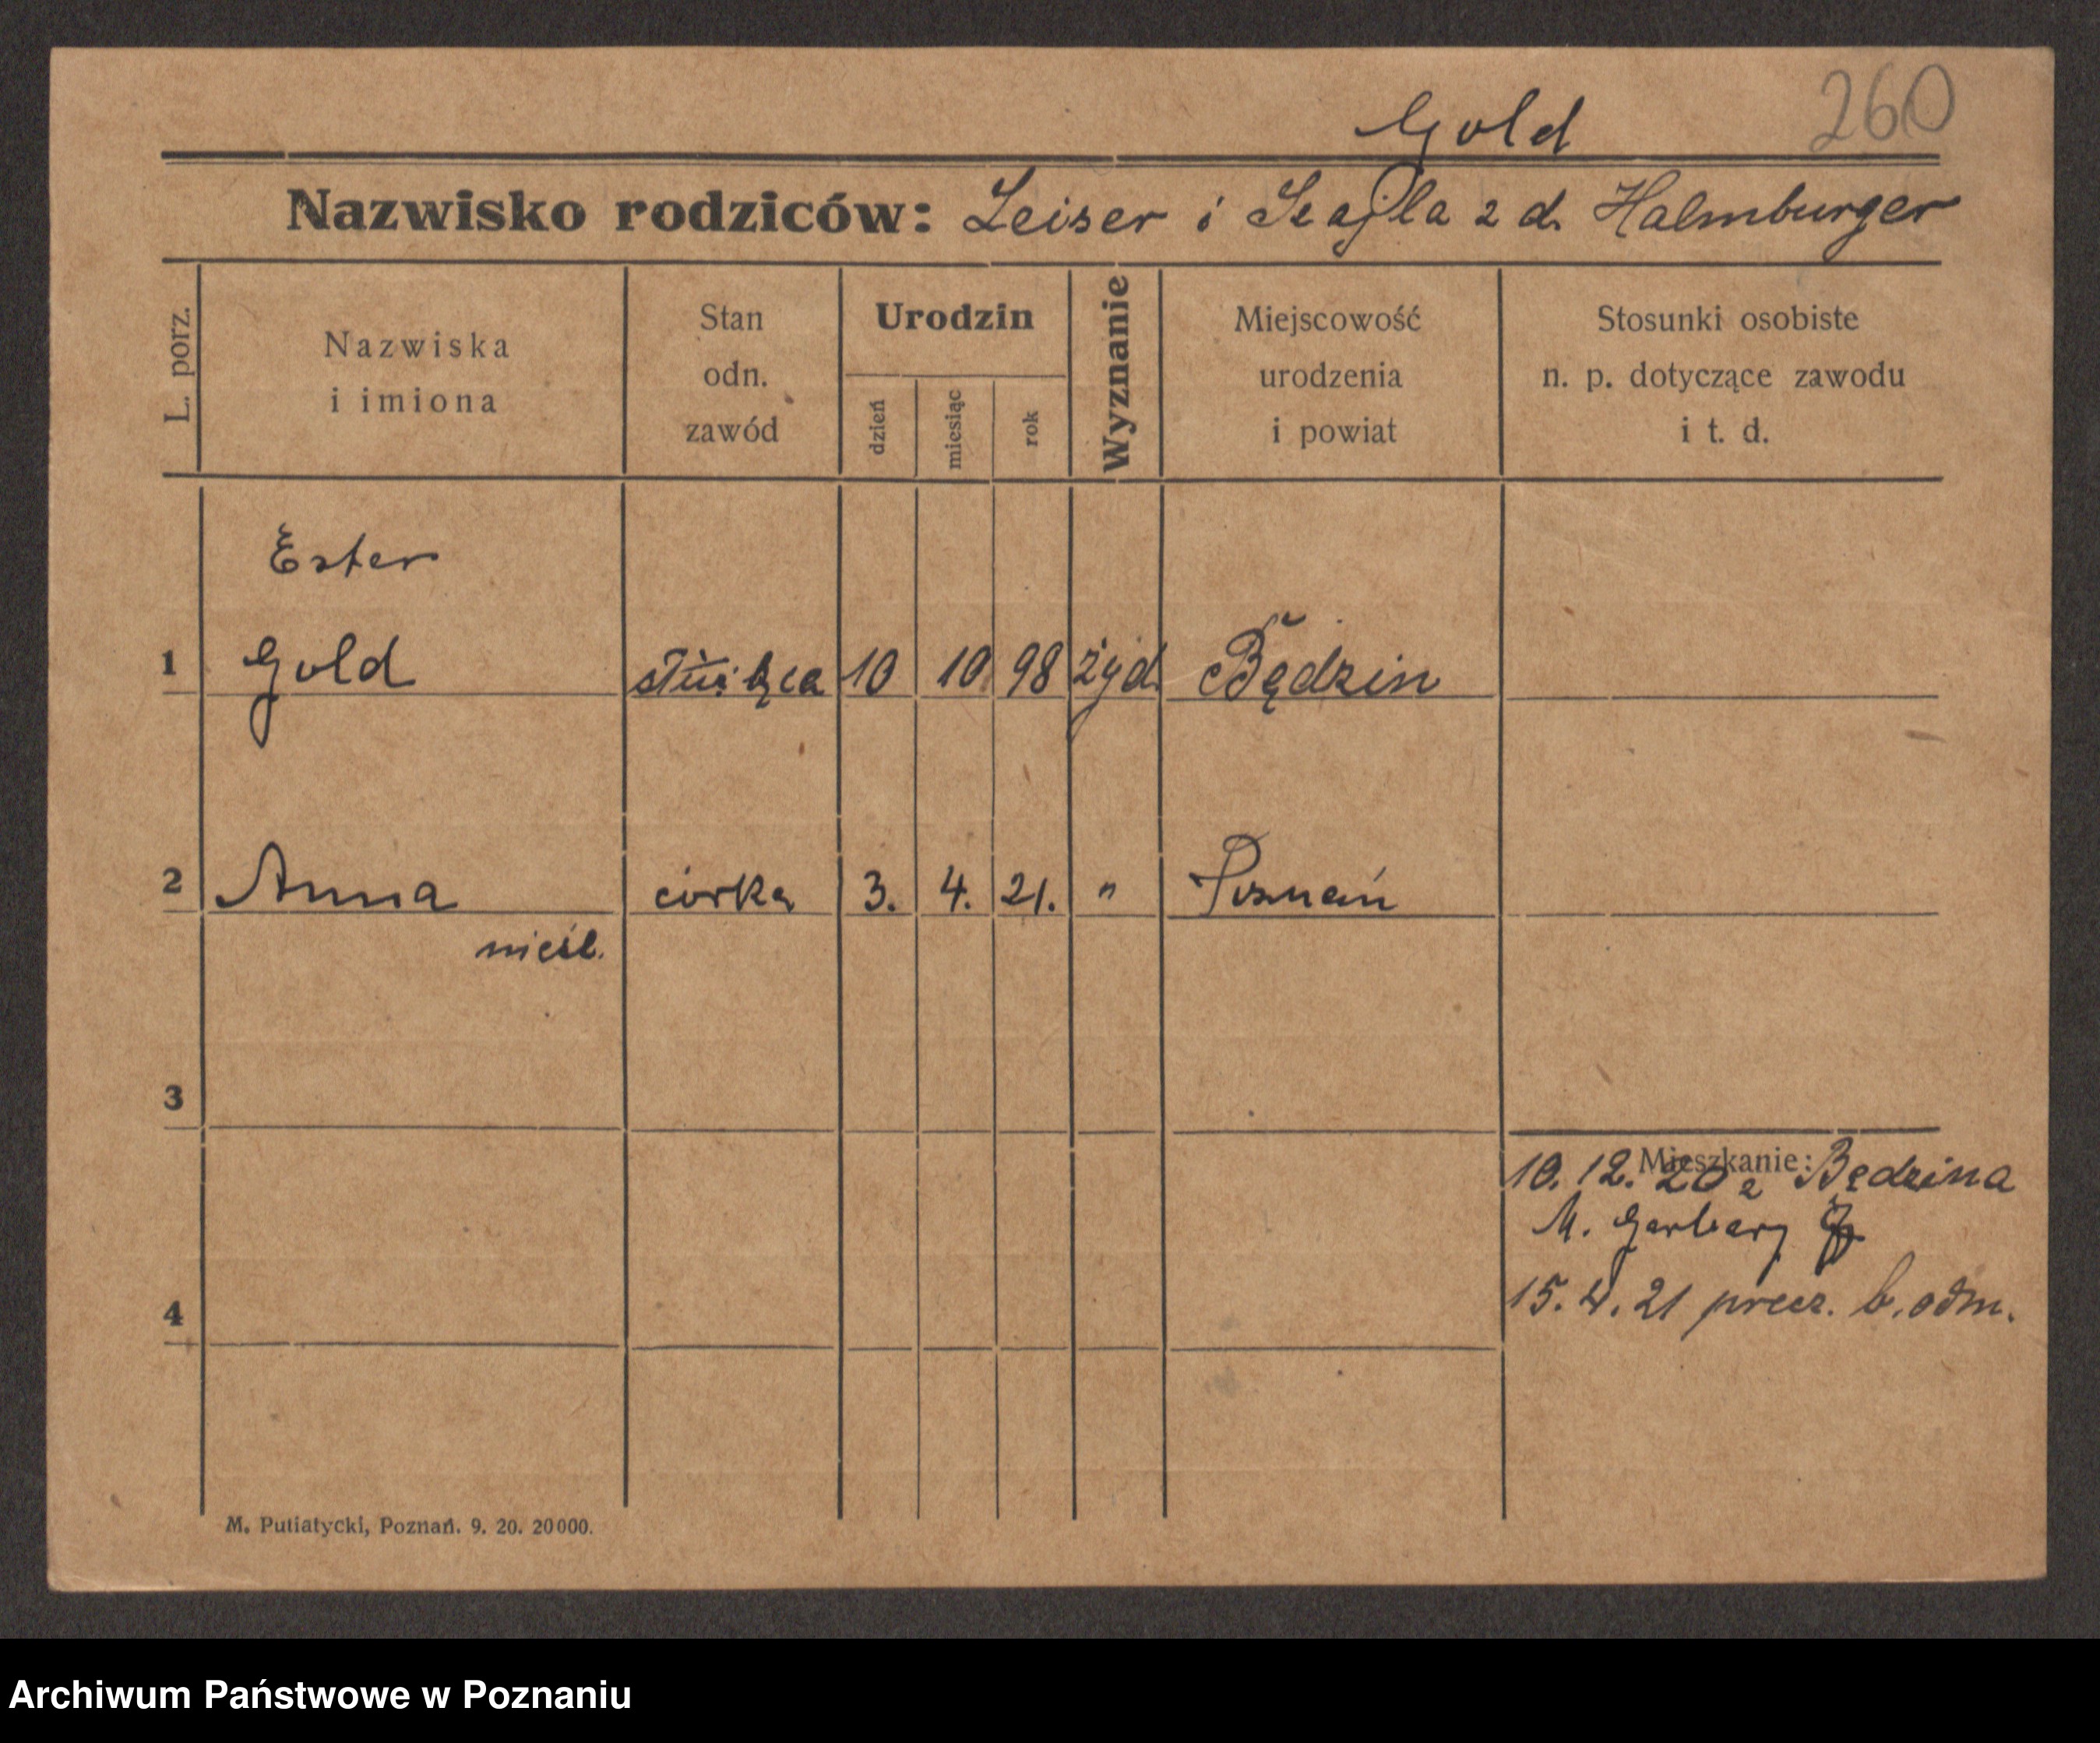 260
Gold
Nazwisko rodziców: Leiser i Szajla z d. Halmburger
L. porz.
Nazwiska
i imiona
Stan
odn.
zawód
Urodzin
dzień
miesiąc
rok
Wyznanie
Miejscowość
urodzenia
i powiat
Stosunki osobiste
n. p. dotyczące zawodu
i t. d.
Ester
1 Gold służąca 10 10 98 żyd. Będzin
2 Anna córka 3. 4. 21. " Poznań
nieśl.
3
Mieszkanie:
10. 12. 20 z Będzina
M. Garbary
4
15. 4. 21 przez. b. odm.
M. Putiatycki, Poznań. 9. 20. 20000.
Archiwum Państwowe w Poznaniu